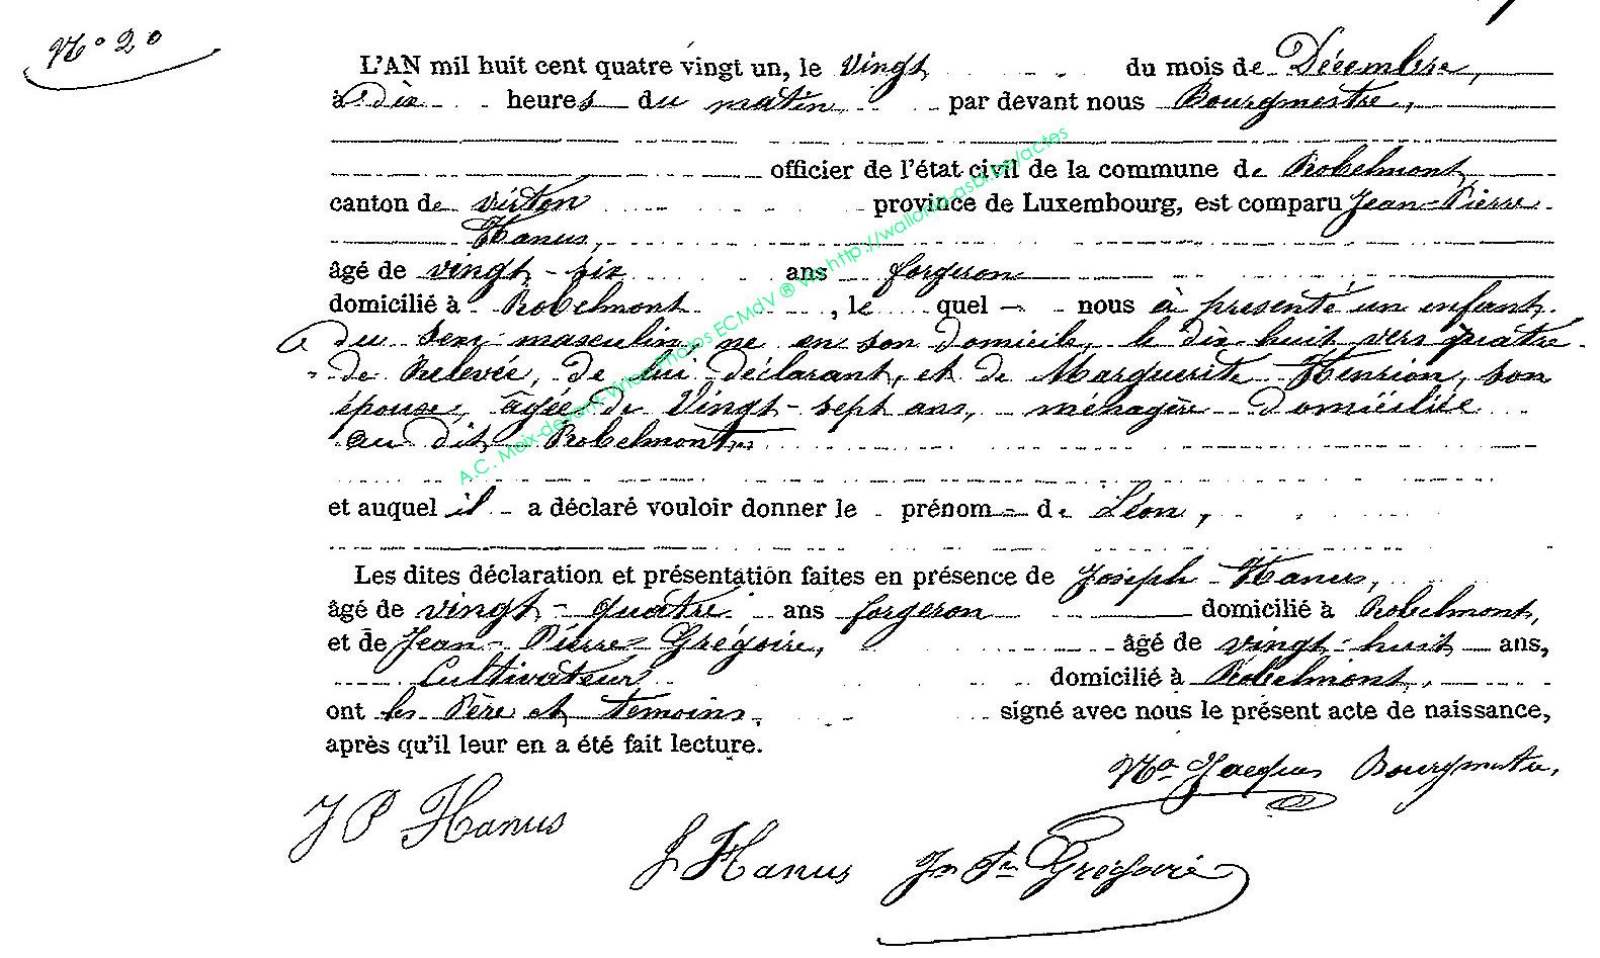 N° 20
L'AN mil huit cent quatre vingt un, le Vingt du mois de Décembre,
à Dix heures du matin par devant nous Bourgmestre,
officier de l'état civil de la commune de Robelmont
canton de virton province de Luxembourg, est comparu Jean-Pierre
Hanus,
âgé de vingt-six ans forgeron
domicilié à Robelmont, le quel nous à presenté un enfant
du sexe masculin, né en son domicile, le dix huit vers quatre
de Relevée, de lui déclarant, et de Marguerite Henrion, son
épouse, agée de Vingt-sept ans, ménagère domiciliée
au dit Robelmont
et auquel il a déclaré vouloir donner le prénom de Léon,
Les dites déclaration et présentation faites en présence de Joseph Hanus,
âgé de vingt-quatre ans forgeron domicilié à Robelmont,
et de Jean-Pierre Grégoire, âgé de vingt-huit ans,
Cultivateur domicilié à Robelmont,
ont les Père et temoins signé avec nous le présent acte de naissance,
après qu'il leur en a été fait lecture.
Jacques Bourgmestre,
J P Hanus
J Hanus
Jn Pre Grégoire
A.C. Meix-devant-Virton Photos ECMdV ® Via http://wallonia-asbl.be/actes